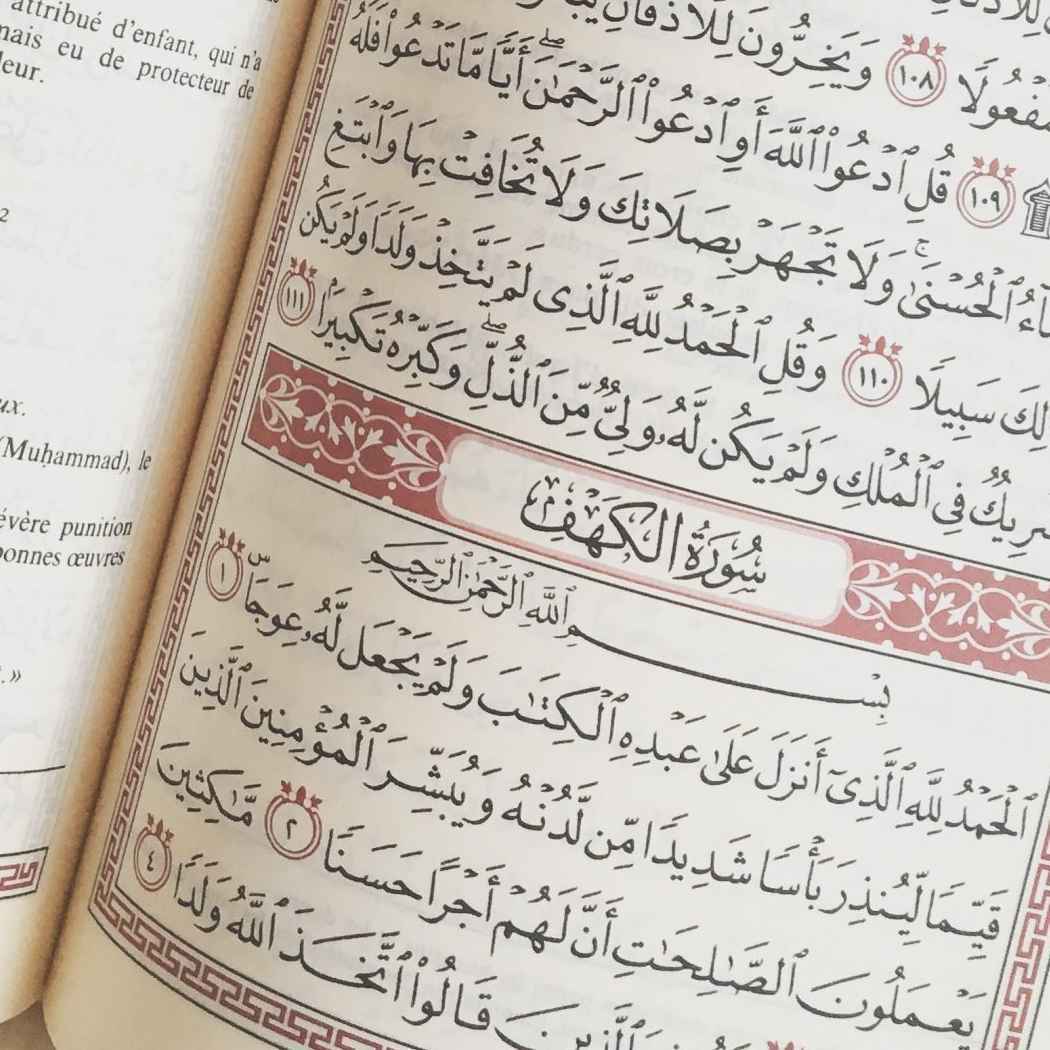 attribué d'enfant, qui n'a
mais eu de protecteur de
leur.
2
ux.
(Muḥammad), le
évère punition
bonnes œuvres
.»
مَفْعُولًا ١٠٨ وَيَخِرُّونَ لِلْأَذْقَانِ
١٠٩ قُلِ ٱدْعُوا۟ ٱللَّهَ أَوِ ٱدْعُوا۟ ٱلرَّحْمَٰنَ ۖ أَيًّا مَّا تَدْعُوا۟ فَلَهُ
ٱلْحُسْنَىٰ ۚ وَلَا تَجْهَرْ بِصَلَاتِكَ وَلَا تُخَافِتْ بِهَا وَٱبْتَغِ
سَبِيلًا ١١٠ وَقُلِ ٱلْحَمْدُ لِلَّهِ ٱلَّذِى لَمْ يَتَّخِذْ وَلَدًا وَلَمْ يَكُن
شَرِيكٌ فِى ٱلْمُلْكِ وَلَمْ يَكُن لَّهُۥ وَلِىٌّ مِّنَ ٱلذُّلِّ ۖ وَكَبِّرْهُ تَكْبِيرًۢا ١١١
سُورَةُ الكَهْفِ
بِسْمِ ٱللَّهِ ٱلرَّحْمَٰنِ ٱلرَّحِيمِ
ٱلْحَمْدُ لِلَّهِ ٱلَّذِىٓ أَنزَلَ عَلَىٰ عَبْدِهِ ٱلْكِتَٰبَ وَلَمْ يَجْعَل لَّهُۥ عِوَجَاۜ ١
قَيِّمًا لِّيُنذِرَ بَأْسًا شَدِيدًا مِّن لَّدُنْهُ وَيُبَشِّرَ ٱلْمُؤْمِنِينَ ٱلَّذِينَ
يَعْمَلُونَ ٱلصَّٰلِحَٰتِ أَنَّ لَهُمْ أَجْرًا حَسَنًا ٢ مَّٰكِثِينَ
ٱلَّذِينَ قَالُوا۟ ٱتَّخَذَ ٱللَّهُ وَلَدًا ٤